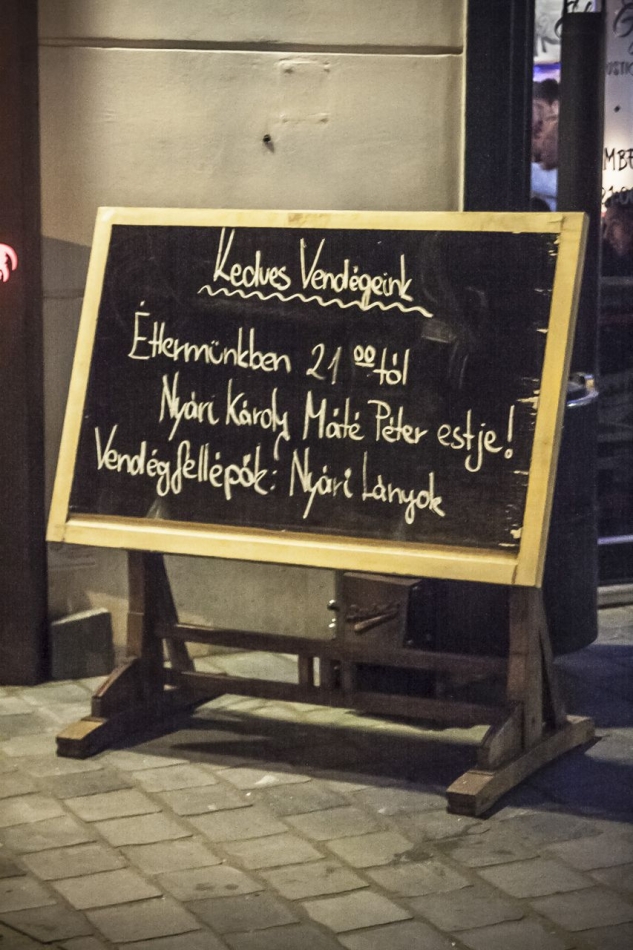 Kedves Vendégeink
Éttermünkben 21 00 tól
Nyári Károly Máté Péter estje!
Vendégfellépők: Nyári Lányok